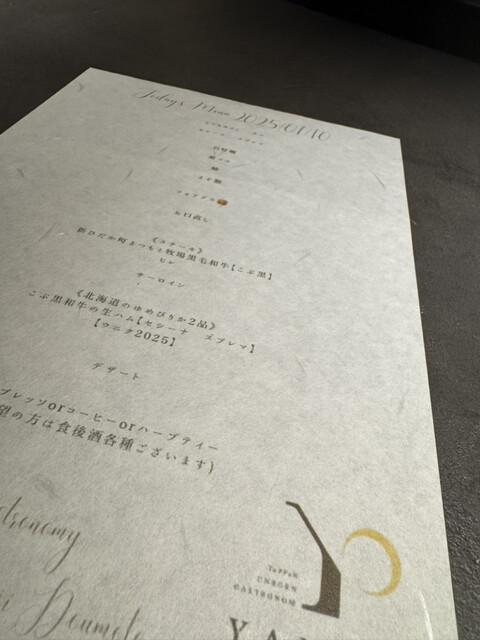 Today's Menu 2025/01/10
フォアグラ
お口直し
《ステーキ》
新ひだか町まつもと牧場黒毛和牛【こぶ黒】
ヒレ
サーロイン
《北海道のゆめぴりか2品》
こぶ黒和牛の生ハム【セシーナ スプレマ】
【ウニク2025】
デザート
プレッソorコーヒーorハーブティー
望の方は食後酒各種ございます)
tronomy
Doumoto
TePPaN
UNBORN
GASTRONOM
YA